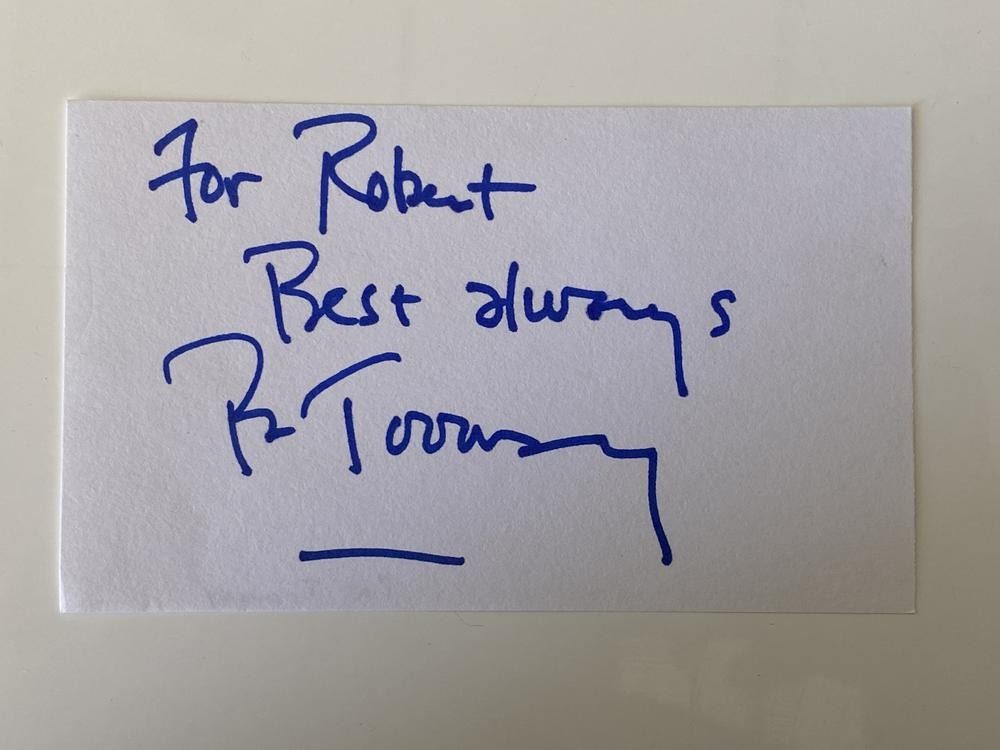 For Robert
Best always
R Toomey